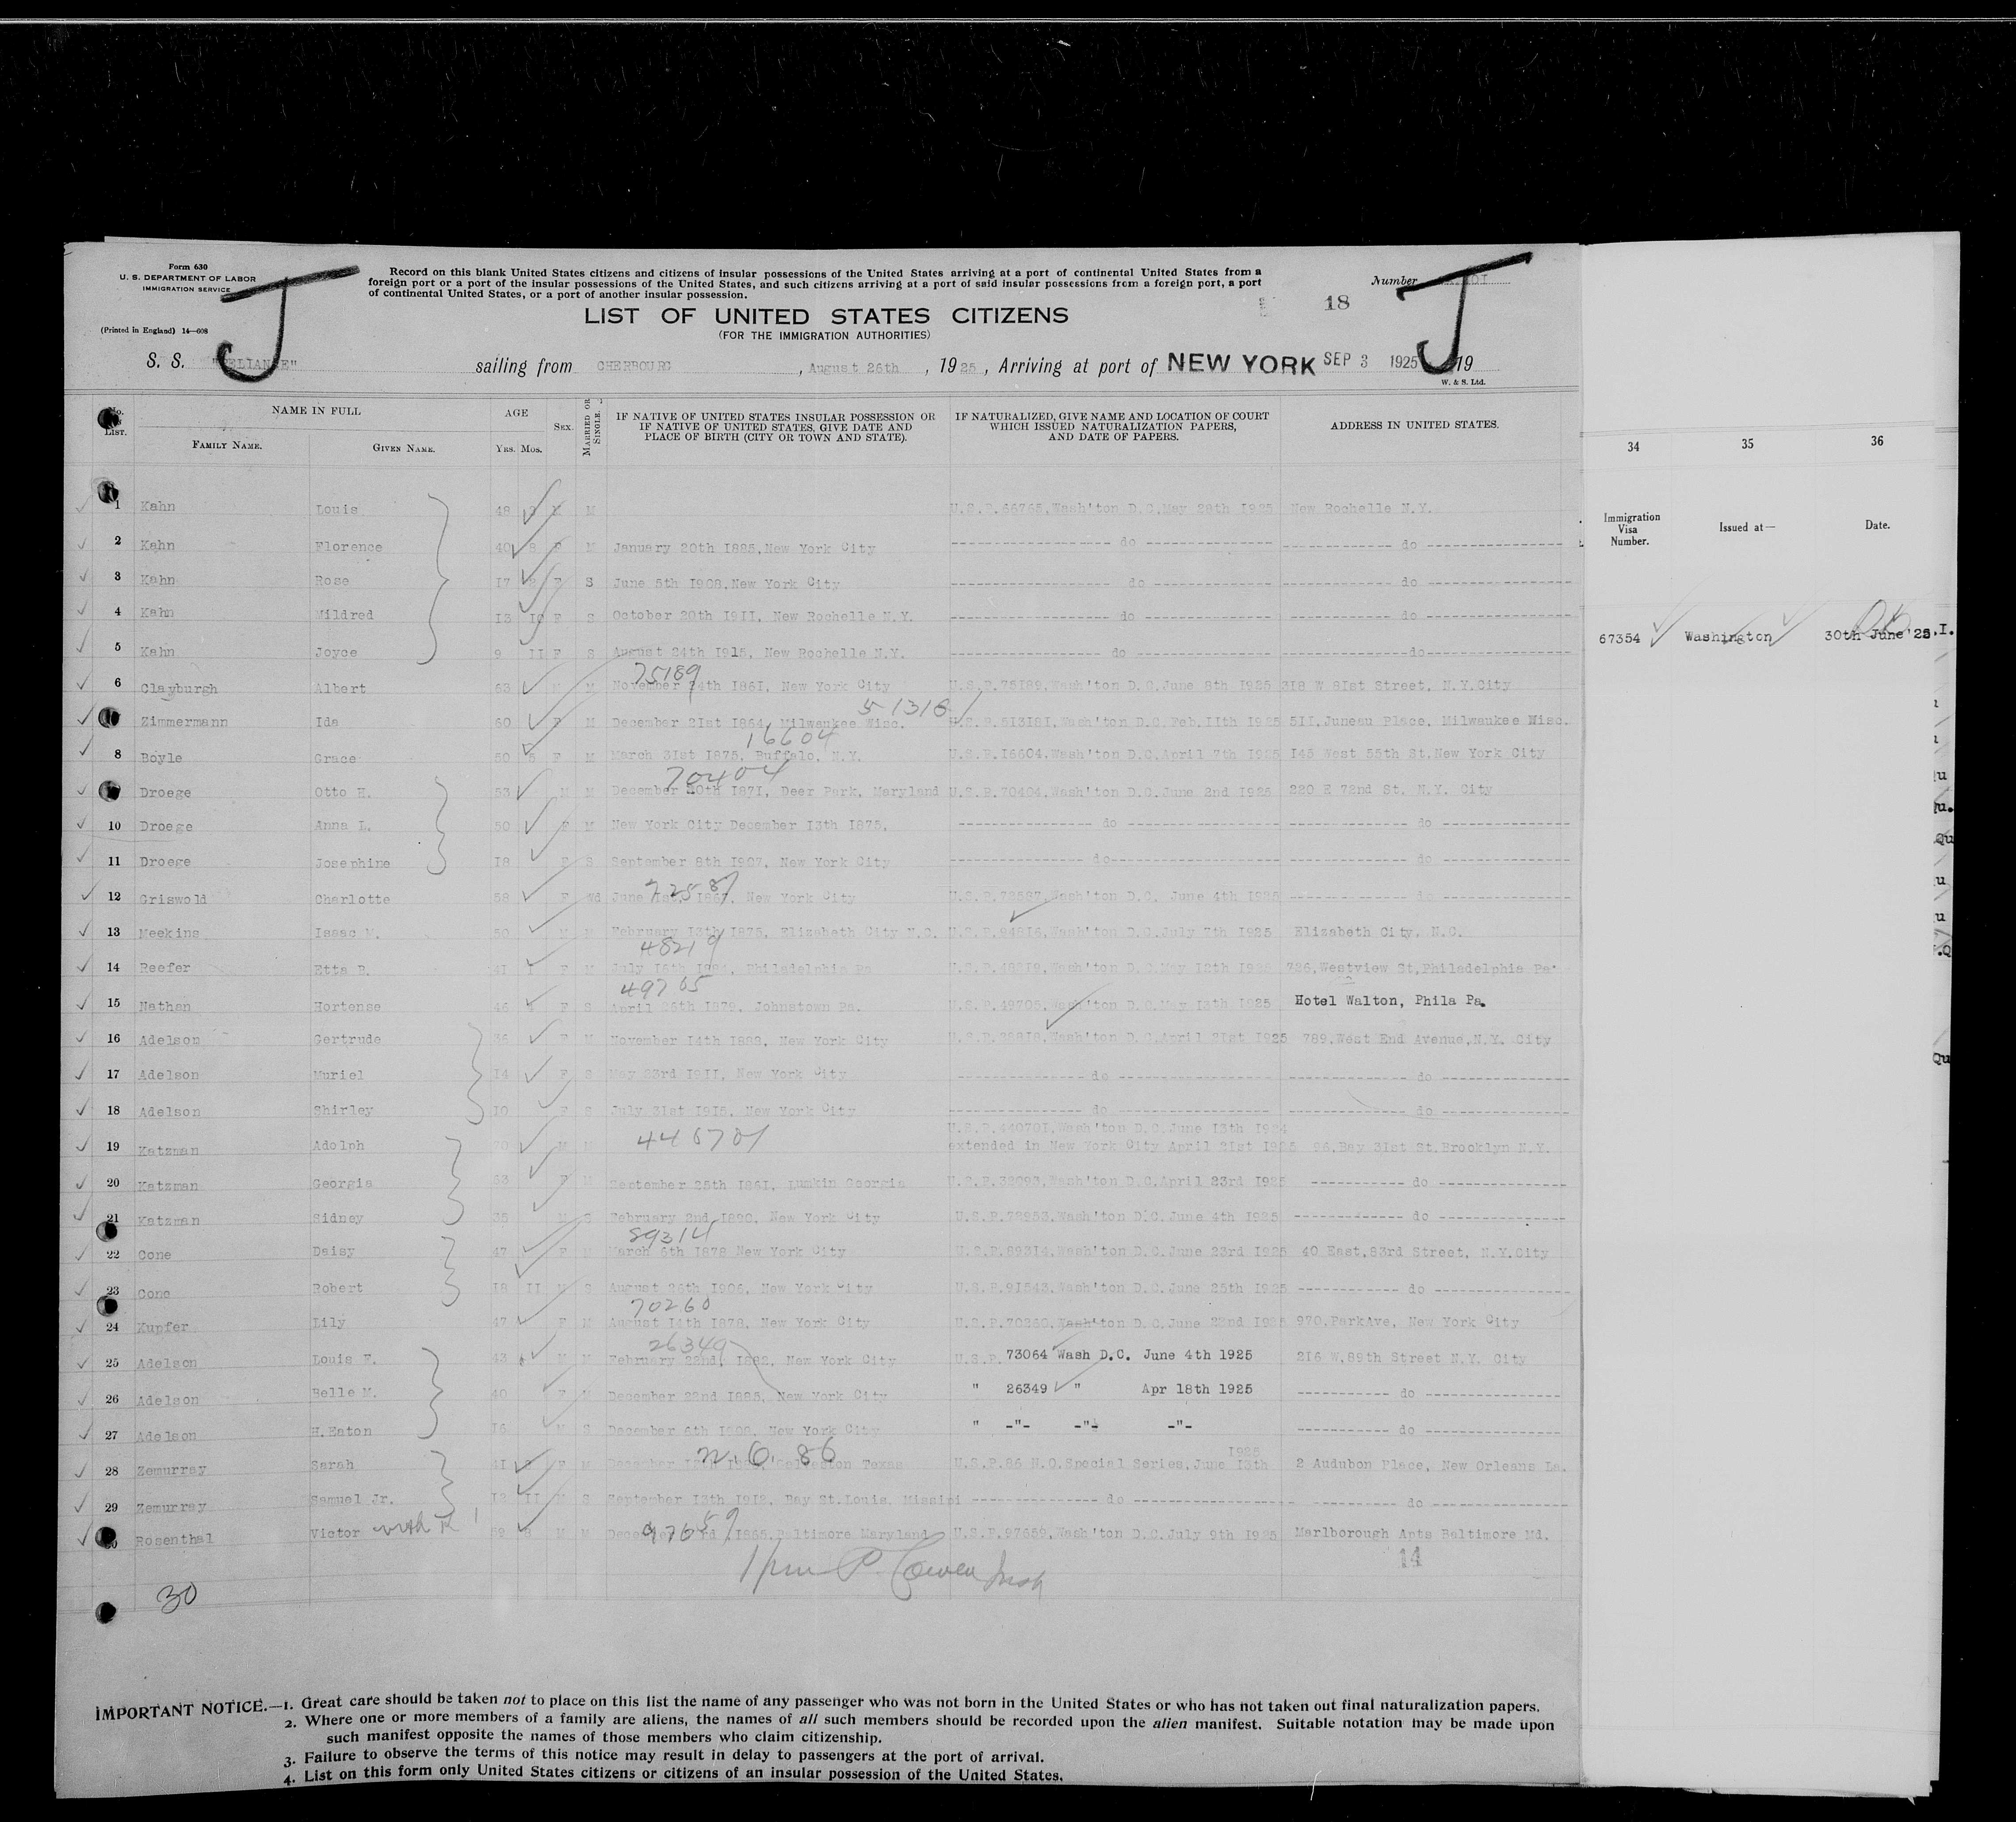 Form 630
U. S. DEPARTMENT OF LABOR
IMMIGRATION SERVICE
(Printed in England) 14—608
J
Record on this blank United States citizens and citizens of insular possessions of the United States arriving at a port of continental United States from a
foreign port or a port of the insular possessions of the United States, and such citizens arriving at a port of said insular possessions from a foreign port, a port
of continental United States, or a port of another insular possession.
Number
18
J
LIST OF UNITED STATES CITIZENS
(FOR THE IMMIGRATION AUTHORITIES)
S. S. "RELIANCE" sailing from CHERBOURG, August 26th, 1925, Arriving at port of NEW YORK SEP 3 1925 19
W. & S. Ltd.
No. LIST. NAME IN FULL FAMILY NAME. GIVEN NAME. AGE YRS. MOS. SEX. MARRIED OR SINGLE. IF NATIVE OF UNITED STATES INSULAR POSSESSION OR IF NATIVE OF UNITED STATES, GIVE DATE AND PLACE OF BIRTH (CITY OR TOWN AND STATE). IF NATURALIZED, GIVE NAME AND LOCATION OF COURT WHICH ISSUED NATURALIZATION PAPERS, AND DATE OF PAPERS. ADDRESS IN UNITED STATES.
34 35 36
Immigration Visa Number. Issued at— Date.
1 Kahn Louis 48 M U.S.P.66765,Wash'ton D.C.May 28th 1925 New Rochelle N.Y.
2 Kahn Florence 40 8 F M January 20th 1885,New York City do do
3 Kahn Rose 17 S June 5th 1908,New York City do do
4 Kahn Mildred 13 10 F S October 20th 1911, New Rochelle N.Y. do do
67354 Washington 30th June'25
5 Kahn Joyce 9 11 F S August 24th 1915, New Rochelle N.Y. do do
75189
6 Clayburgh Albert 63 M November 24th 1861, New York City U.S.P.75189,Wash'ton D.C.June 8th 1925 318 W 81st Street, N.Y.City
51318
7 Zimmermann Ida 60 F M December 21st 1864, Milwaukee Wisc. U.S.P.513181,Wash'ton D.C.Feb.11th 1925 511,Juneau Place, Milwaukee Wisc.
16604
8 Boyle Grace 50 5 F M March 31st 1875, Buffalo, N.Y. U.S.P.16604,Wash'ton D.C.April 7th 1925 145 West 55th St.New York City
70404
Droege Otto H. 53 M M December 20th 1871, Deer Park, Maryland U.S.P.70404,Wash'ton D.C.June 2nd 1925 220 E 72nd St. N.Y. City
10 Droege Anna L. 50 F M New York City December 13th 1875. do do
11 Droege Josephine 18 F S September 8th 1907, New York City do do
72587
12 Griswold Charlotte 58 F Wd June 1st, 1867, New York City U.S.P.72587,Wash'ton D.C. June 4th 1925 do
13 Meekins Isaac M. 50 M M February 13th 1875, Elizabeth City N.C. U.S.P.94816,Wash'ton D.C.July 7th 1925 Elizabeth City, N.C.
48219
14 Reefer Etta R. 41 1 F M July 15th 1884, Philadelphia Pa U.S.P.48219,Wash'ton D.C.May 12th 1925 726,Westview St,Philadelphia Pa.
49705
15 Nathan Hortense 46 4 F S April 26th 1879, Johnstown Pa. U.S.P.49705,Wash'ton D.C.May 13th 1925 Hotel Walton, Phila Pa.
16 Adelson Gertrude 36 F M November 14th 1888, New York City U.S.P.28818,Wash'ton D.C.April 21st 1925 789,West End Avenue,N.Y. City
17 Adelson Muriel 14 F S May 23rd 1911, New York City do do
18 Adelson Shirley 10 F S July 31st 1915, New York City do do
440701 U.S.P.440701,Wash'ton D.C.June 13th 1924
19 Katzman Adolph 70 M M extended in New York City April 21st 1925 96,Bay 31st St.Brooklyn N.Y.
20 Katzman Georgia 63 F M September 25th 1861, Lumkin Georgia U.S.P.32093,Wash'ton D.C.April 23rd 1925 do
21 Katzman Sidney 35 M S February 2nd 1890, New York City U.S.P.72953,Wash'ton D.C. June 4th 1925 do
89314
22 Cone Daisy 47 F March 6th 1878 New York City U.S.P.89314,Wash'ton D.C.June 23rd 1925 40 East,83rd Street, N.Y.City
23 Cone Robert 18 11 M S August 26th 1906, New York City U.S.P.91543,Wash'ton D.C.June 25th 1925 do
70260
24 Kupfer Lily 47 F M August 14th 1878, New York City U.S.P.70260,Wash'ton D.C.June 22nd 1925 970,ParkAve, New York City
26349
25 Adelson Louis F. 43 M M February 22nd, 1882, New York City U.S.P. 73064 Wash D.C. June 4th 1925 216 W.89th Street N.Y. City
26 Adelson Belle M. 40 F M December 22nd 1885, New York City " 26349 " Apr 18th 1925 do
27 Adelson H.Eaton 16 M S December 6th 1908, New York City " -"- -"- -"- do
N.O. 86 1925
28 Zemurray Sarah 41 F M December Galveston Texas U.S.P.86 N.O.Special Series,June 13th 2 Audubon Place, New Orleans La.
29 Zemurray Samuel Jr. 12 11 M S September 13th 1912, Bay St.Louis, Missipi do do
97659
Rosenthal Victor M M 1865,Baltimore Maryland U.S.P.97659,Wash'ton D.C.July 9th 1925 Marlborough Apts Baltimore Md.
14
30
IMPORTANT NOTICE.—1. Great care should be taken not to place on this list the name of any passenger who was not born in the United States or who has not taken out final naturalization papers.
2. Where one or more members of a family are aliens, the names of all such members should be recorded upon the alien manifest. Suitable notation may be made upon
such manifest opposite the names of those members who claim citizenship.
3. Failure to observe the terms of this notice may result in delay to passengers at the port of arrival.
4. List on this form only United States citizens or citizens of an insular possession of the United States.